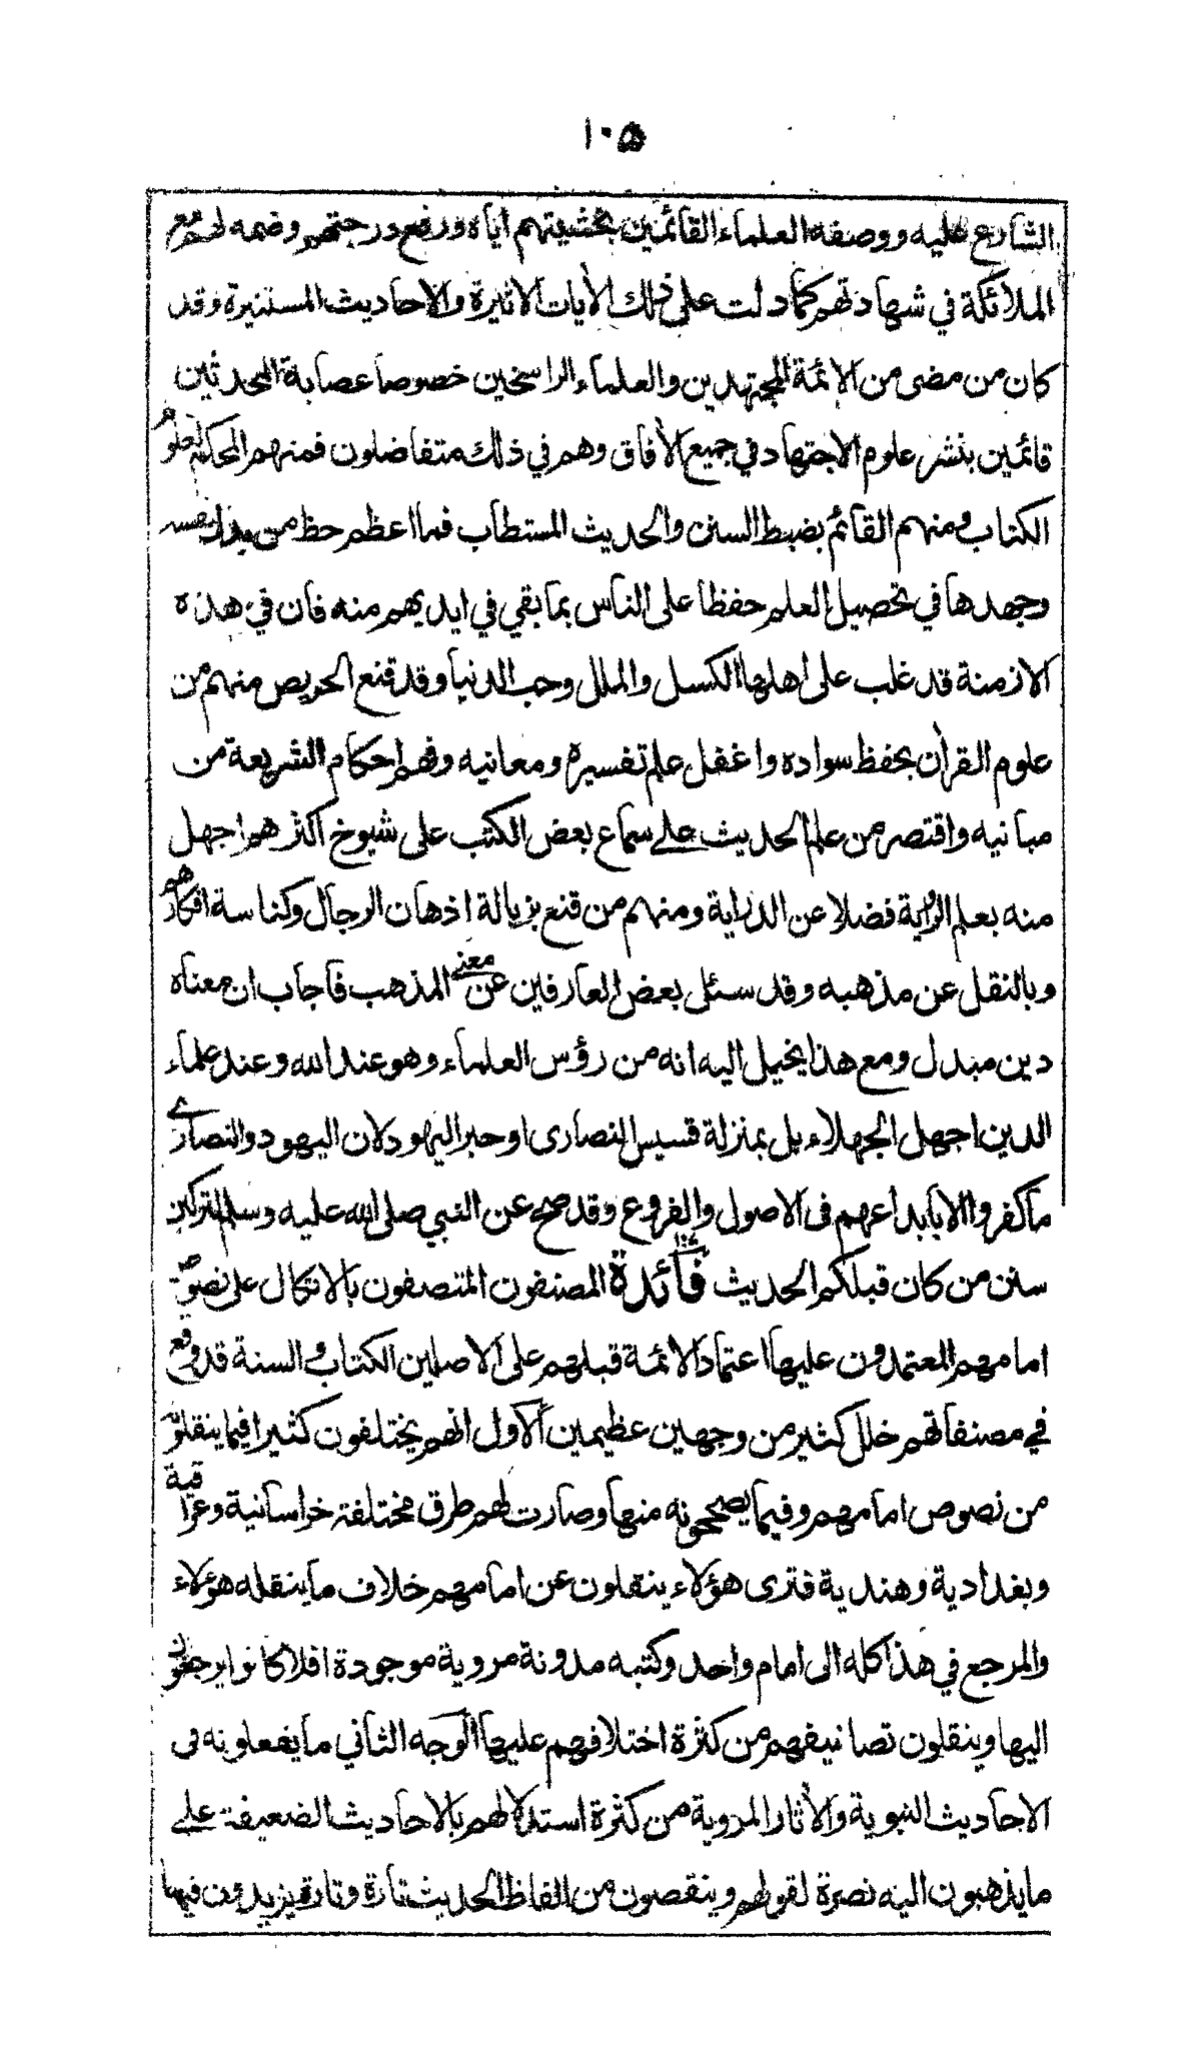 ١٠٥
الشارع عليه ووصفه العلماء القائمين بخشيتهم اياه ورفع درجتهم وضمه لهم مع
الملائكة في شهادتهم كما دلت على ذلك الأيات الاثيرة والاحاديث المستنيرة وقد
كان من مضى من الائمة المجتهدين والعلماء الراسخين خصوصا عصابة المحدثين
قائمين بنشر علوم الاجتهاد في جميع الأفاق وهم في ذلك متفاضلون فمنهم المحكم لعلوم
الكتاب ومنهم القائم بضبط السنن والحديث المستطاب فما اعظم حظ من بذل نفسه
وجهدها في تحصيل العلم حفظا على الناس بما بقي في ايديهم منه فان في هذه
الازمنة قد غلب على اهلها الكسل والملل وحب الدنيا وقد قنع الحريص منهم من
علوم القرأن بحفظ سواده واغفل علم تفسيره ومعانيه وفهم احكام الشريعة من
مبانيه واقتصر من علم الحديث على سماع بعض الكتب على شيوخ اكثرهم اجهل
منه بعلم الرواية فضلا عن الدراية ومنهم من قنع بزبالة اذهان الرجال وكناسة افكارهم
وبالنقل عن مذهبه وقد سئل بعض العارفين عن معنى المذهب فاجاب ان معناه
دين مبدل ومع هذا يخيل اليه انه من رؤس العلماء وهو عند الله وعند علماء
الدين اجهل الجهلاء بل بمنزلة قسيس النصارى او حبر اليهود لان اليهود والنصارى
ما كفروا الا بابداعهم فى الاصول والفروع وقد صح عن النبي صلى الله عليه وسلم لتركبن
سنن من كان قبلكم الحديث فائدة المصنفون المتصفون بالاتكال على نصوص
امامهم المعتمدون عليها اعتماد الائمة قبلهم على الاصلين الكتاب والسنة قد وقع
في مصنفاتهم خلل كثير من وجهين عظيمين الاول انهم يختلفون كثيرا فيما ينقلون
من نصوص امامهم وفيما يصححونه منها وصارت لهم طرق مختلفة خراسانية وعراقية
وبغدادية وهندية فترى هؤلاء ينقلون عن امامهم خلاف ما ينقله هؤلاء
والمرجع في هذا كله الى امام واحد وكتبه مدونة مروية موجودة افلا كانوا يرجعون
اليها وينقلون تصانيفهم من كثرة اختلافهم عليها الوجه الثاني ما يفعلونه فى
الاحاديث النبوية والأثار المروية من كثرة استدلالهم بالاحاديث الضعيفة على
ما يذهبون اليه نصرة لقولهم وينقصون من الفاظ الحديث تارة وتارة يزيدون فيها